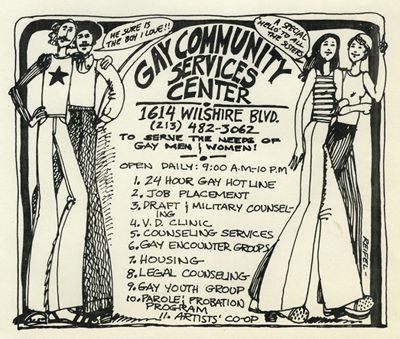 HE SURE IS
THE BOY I LOVE!!
A SPECIAL
HELLO TO ALL
THE SISTERS
GAY COMMUNITY
SERVICES
CENTER
1614 WILSHIRE BLVD.
(213) 482-3062
TO SERVE THE NEEDS OF
GAY MEN & WOMEN!
OPEN DAILY: 9:00 A.M-10 P.M
1. 24 HOUR GAY HOTLINE
2. JOB PLACEMENT
3. DRAFT & MILITARY COUNSEL-
ING
4. V.D. CLINIC
5. COUNSELING SERVICES
6. GAY ENCOUNTER GROUPS
7. HOUSING
8. LEGAL COUNSELING
9. GAY YOUTH GROUP
10. PAROLE & PROBATION
PROGRAM
11. ARTISTS' CO-OP